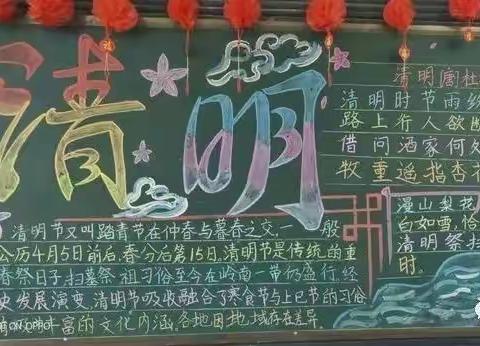 清明
清明唐杜
清明时节雨纷
路上行人欲断
借问酒家何处
牧童遥指杏花
清明节又叫踏青节在仲春与暮春之交,一般
公历4月5日前后,春分后第15日,清明节是传统的重
春祭日子,扫墓祭祖习俗至今在岭南一带仍盛行,经
史发展演变,清明节吸收融合了寒食节与上巳节的习俗
丰富的文化内涵,各地因地域存在差异
漫山梨花
白如雪,恰
清明祭扫
时.